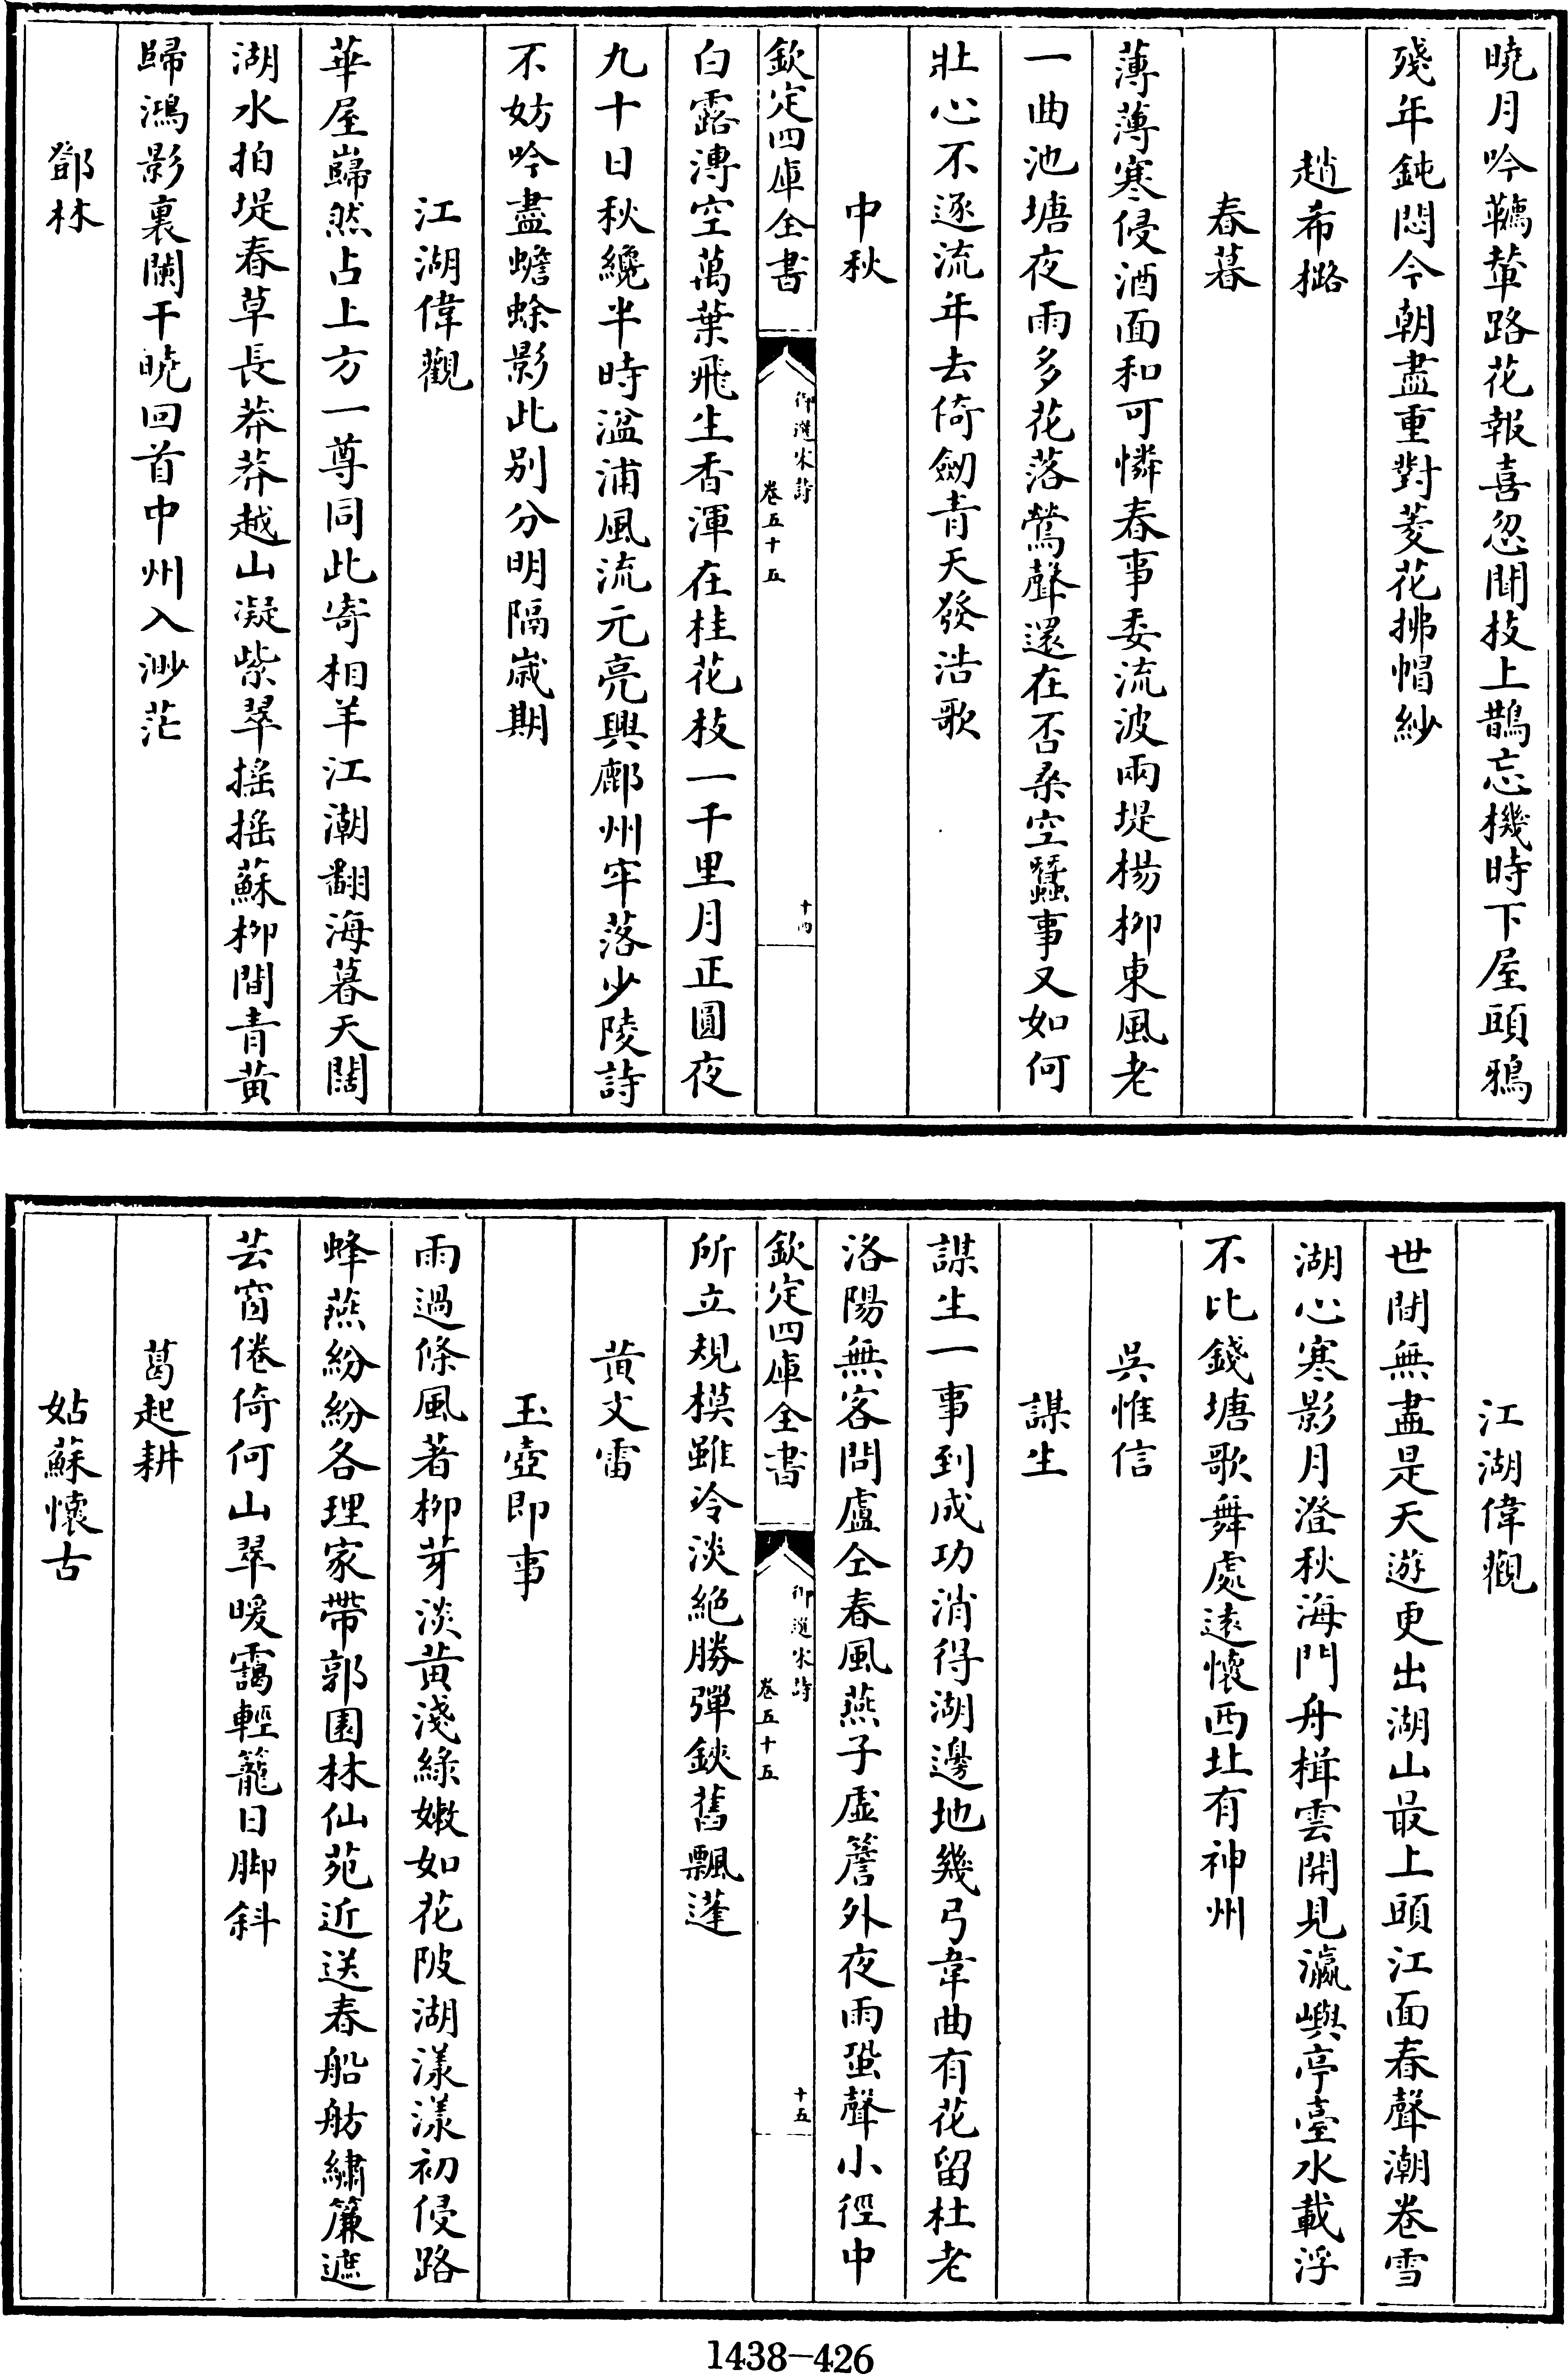 曉月吟鞿輦路花報喜忽聞枝上鵲忘機時下屋頭鴉
殘年鈍悶今朝盡重對菱花拂帽紗
趙希𣗳
春暮
薄薄寒侵酒面和可憐春事委流波兩堤楊柳東風老
一曲池塘夜雨多花落鶯聲還在否桑空蠶事又如何
壯心不逐流年去倚劒青天發浩歌
中秋
欽定四庫全書
御選宋詩
卷五十五
十四
白露漙空萬葉飛生香渾在桂花枝一千里月正圓夜
九十日秋纔半時湓浦風流元亮興鄜州牢落少陵詩
不妨吟盡蟾蜍影此别分明隔嵗期
江湖偉觀
華屋巋然占上方一尊同此寄相羊江潮翻海暮天闊
湖水拍堤春草長莽莽越山凝紫翠搖搖蘇柳間青黄
歸鴻影裏闌干曉回首中州入渺茫
鄧林
江湖偉觀
世間無盡是天遊更出湖山最上頭江面春聲潮卷雪
湖心寒影月澄秋海門舟楫雲開見瀛嶼亭臺水載浮
不比錢塘歌舞處遠懷西北有神州
吳惟信
謀生
謀生一事到成功消得湖邊地幾弓韋曲有花留杜老
洛陽無客問盧仝春風燕子虛簷外夜雨蛩聲小徑中
欽定四庫全書
御選宋詩
卷五十五
十五
所立規模雖冷淡絶勝彈鋏舊飄蓬
黄文雷
玉壺即事
雨過條風著柳芽淡黄淺綠嫩如花陂湖漾漾初侵路
蜂燕紛紛各理家帶郭園林仙苑近送春船舫繡簾遮
芸窗倦倚何山翠暖靄輕籠日脚斜
葛起耕
姑蘇懷古
1438-426